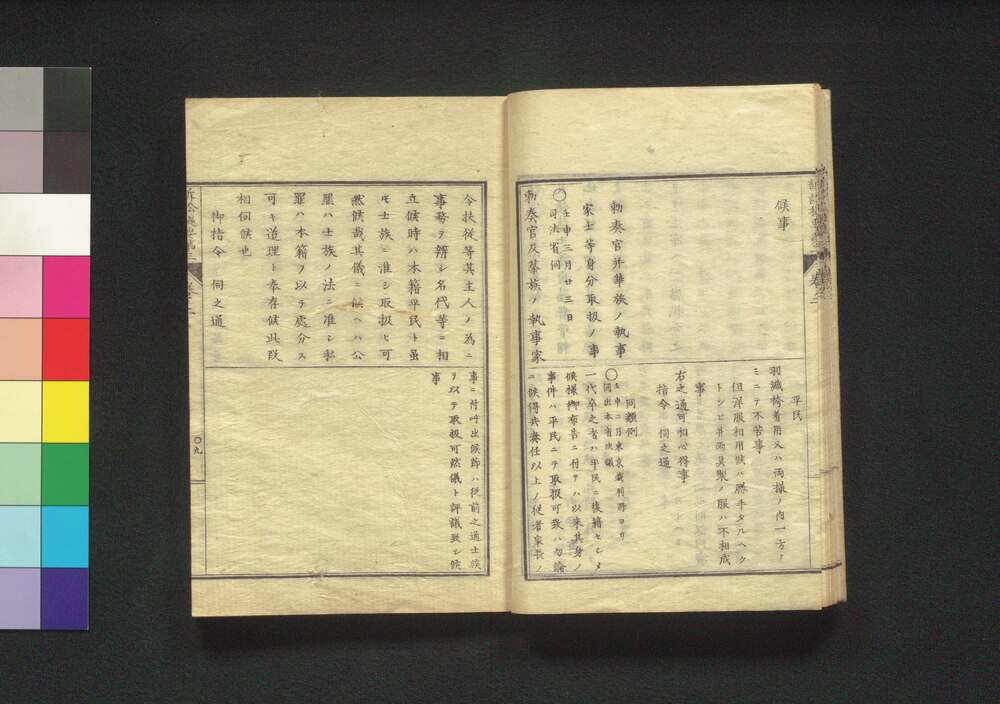 候事
勅奏官并華族ノ執事
家士等身分取扱ノ事
〇壬申三月廿三日
司法省伺
勅奏官及華族ノ執事家
平民
羽織袴着用又ハ両様ノ内一方ノ
ミニテ不苦事
但洋服相用候ハ勝手タルヘク
トシヒ并両具製ノ服ハ不相成
事
右之通可相心得事
指令 伺之通
同類例
〇壬申二月東京裁判所ヨリ
伺出本省決議
一代卒之者ハ平民ニ復籍セシメ
候様御布告ニ付テハ以来其身ノ
事件ハ平民ニテ取扱可致ハ勿論
ニ候得共奏任以上ノ従者家長ノ
令扶従等其主人ノ為ニ
事務ヲ辨シ名代等ニ相
立候時ハ本籍平民ト虽
モ士族ニ准シ取扱ヒ可
然候哉其儀ニ候ヘハ公
罪ハ士族ノ法ニ准シ私
罪ハ本籍ヲ以テ處分ス
可キ道理ト奉存候此段
相伺候也
御指令 伺之通
事ニ付呼出候節ハ従前之通士族
ヲ以テ取扱可然儀ト評議致シ候
事
〇九